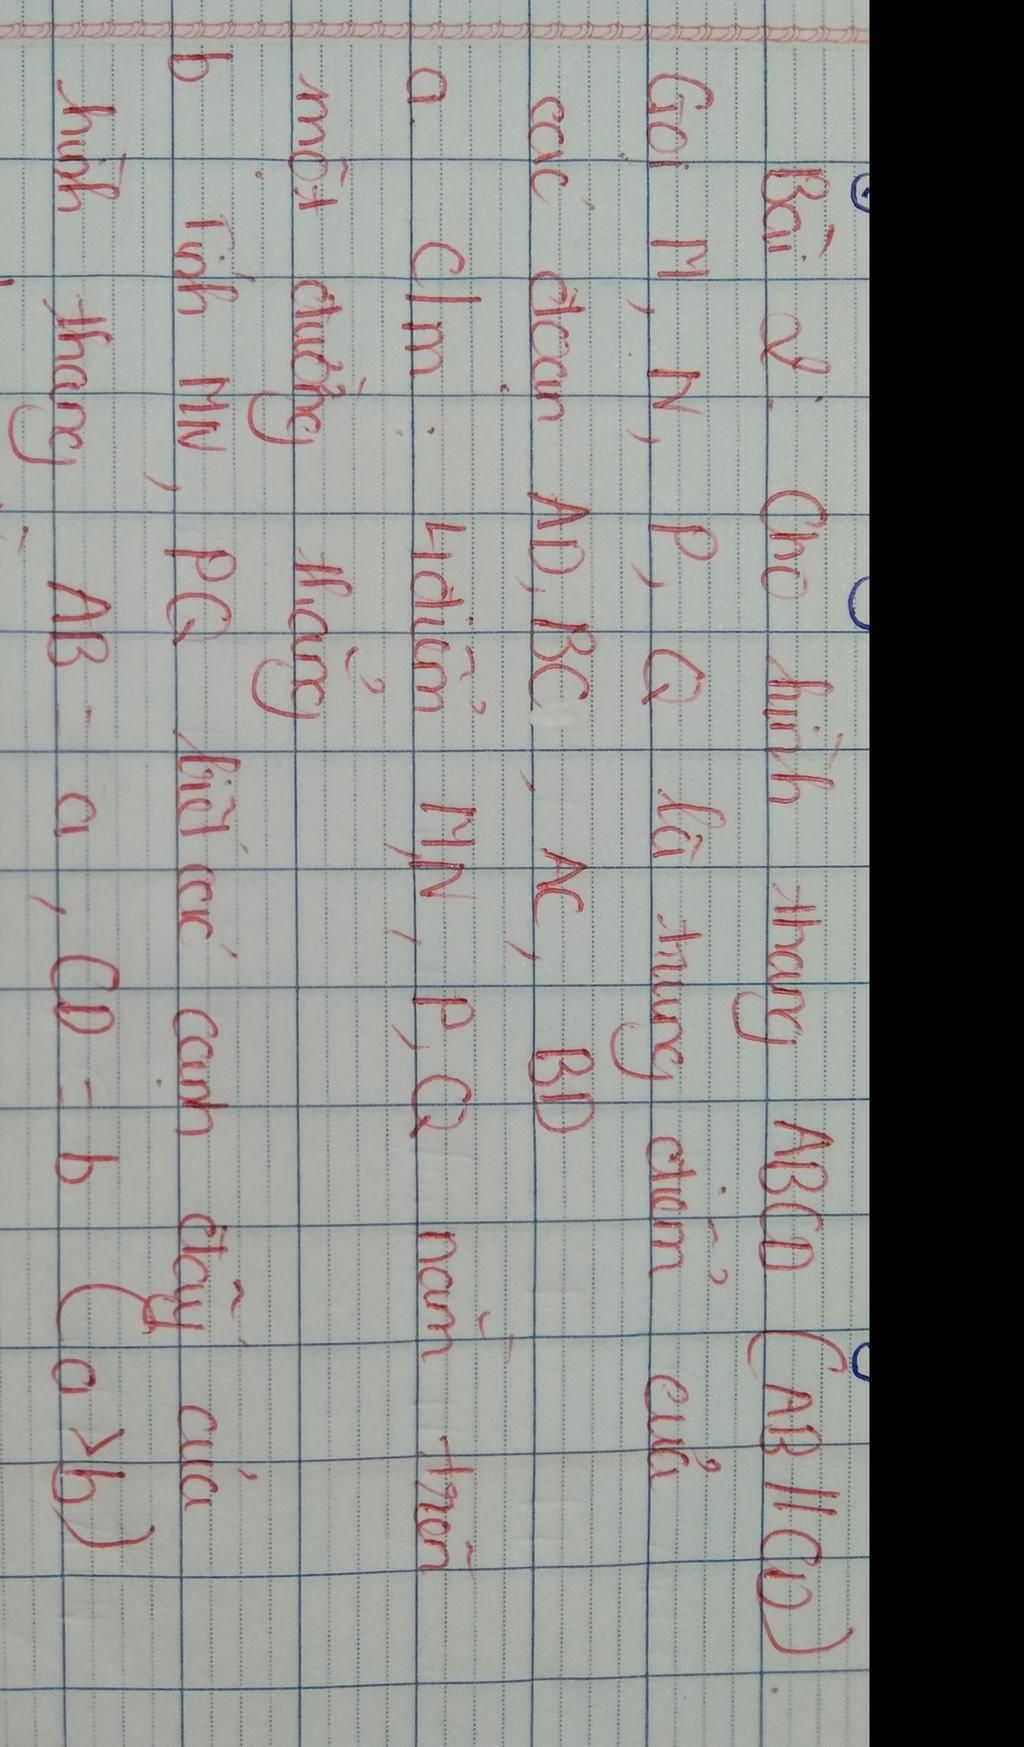 Bài 2. Cho hình thang ABCD (AB // CD).
Gọi M, N, P, Q là trung điểm của
các đoạn AD, BC, AC, BD
a. C/m: 4 điểm M, N, P, Q nằm trên
một đường thẳng
b Tính MN, PQ biết các cạnh đáy của
hình thang AB = a, CD = b (a > b)